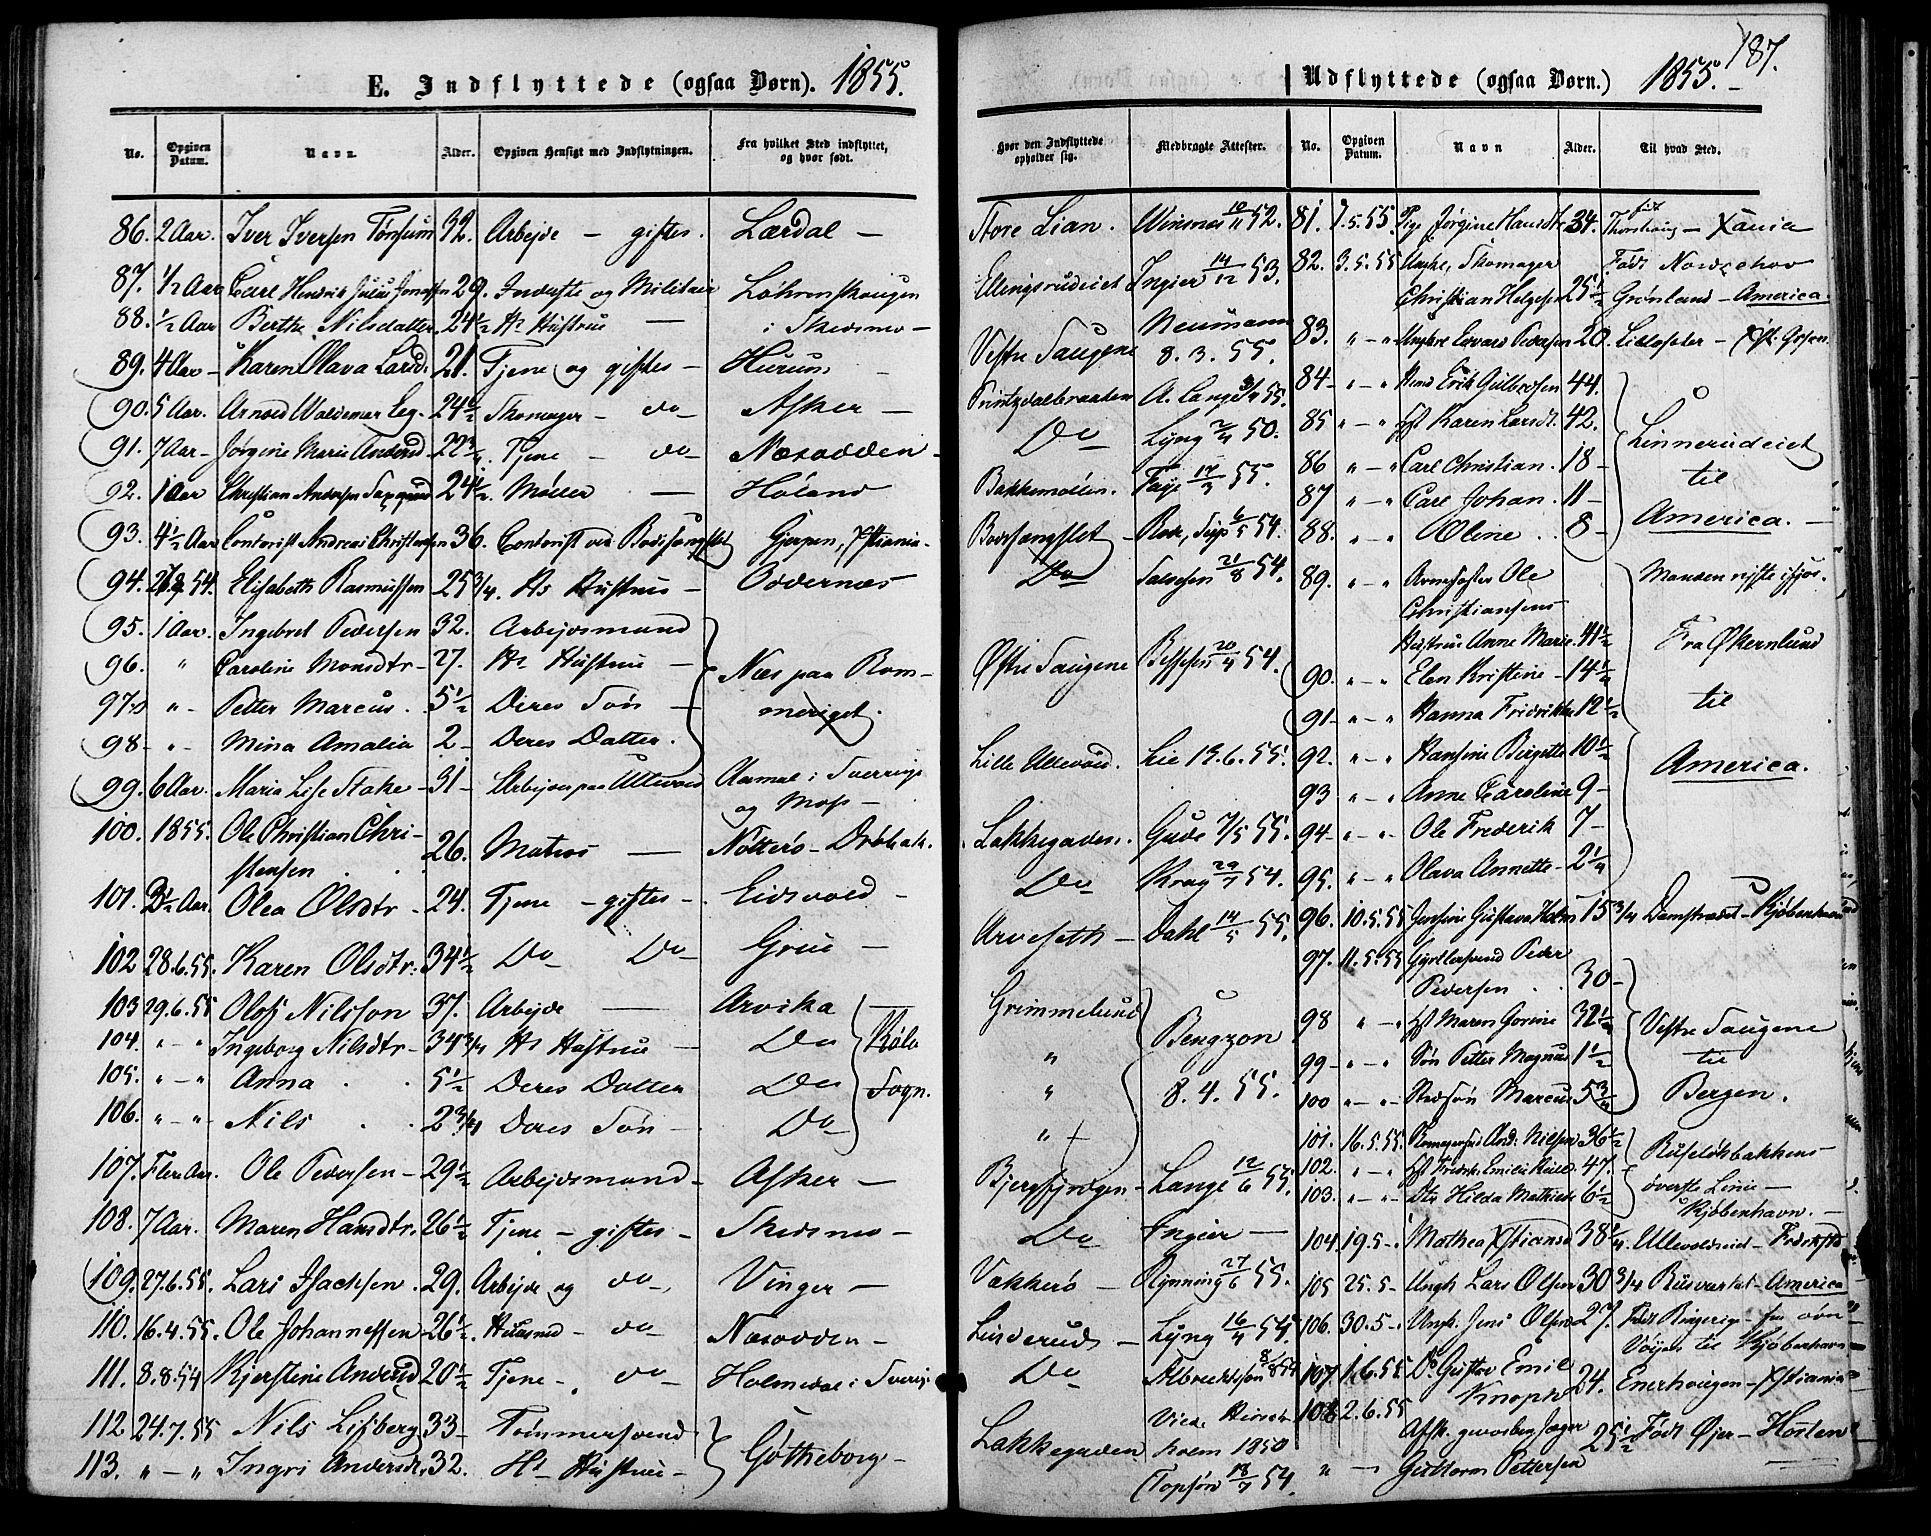 E. Indflyttede (ogsaa Børn). 1855.
No. Opgiven Datum. Navn Alder. Opgiven Hensigt med Indflytningen. Fra hvilket Sted indflyttet, og hvor født.
86. 2 Aar. Iver Iversen Tønsum 32. Arbejde – giftes. Lærdal –
87. 1/2 Aar Carl Hendrik Julius Jonassen 29. Indrøfte og Militair Løhrenskougen
88. 1/2 Aar Berthe Nilsdatter 24 1/2 Hs Hustrue — i Skedsmo –
89. 4 Aar – Karen Olava Larsd. 21. Tjene og giftes – Hurum –
90. 5 Aar. Arnold Waldemar Eeg. 24 1/2 Skomager – do Asker –
91. 7 Aar – Jørgine Marie Andersd 22 3/4. Tjene – do Næsodden –
92. 1 Aar Christian Andersen 24 1/2. Møller — Høland
93. 4 1/2 Aar Contorist Andreas Christensen 36. Contorist ved Bodsfængslet Gjerpen, Xstiania.
94. 54. Elisabeth Rasmussen 25 3/4. Hs Hustrue – Oddernæs
95. 1 Aar. Ingebret Pedersen 32. Arbejdsmand
96. " Caroline Monsdtr – 27. Hs Hustrue – Næs paa Rom-
97. " – Petter Marcus. 5 1/2 Deres Søn – meriget.
98 – " – Mina Amalia 2 – Deres Datter.
99. 6 Aar. Maria Lise Stake – 31 – Arbejder paa Ullevold Aamal i Sverrige og Moss –
100. 1855. Ole Christian Christensen 26. Matros — Nøtterø – Drøbak.
101. 3 1/2 Aar. Olea Olsdtr. 24. Tjene – giftes – Eidsvold –
102 28.6.55. Karen Olsdtr. 34 1/2 Do Do Grue –
103 29.6.55 Olof Nilsson 37. Arbejde — Arvika —
104. " – " Ingeborg Nilsdtr – 34 3/4 Hs Hustrue – Do Køla
105. " – " Anna 5 1/2 Deres Datter Do Sogn.
106. " – " Nils 2 3/4 Deres Søn – Do
107. Flere Aar. Ole Pedersen – 29 1/2 Arbejdsmand – Asker –
108. 7 Aar. Maren Hansdtr. 26 1/2 Tjene – giftes – Skedsmo –
109. 27.6.55. Lars Isachsen. 29. Arbejde og do Vinger –
110. 16.4.55. Ole Johannessen 26 1/2. Huusmd – do Næsodden –
111. 8.8.54 Kjerstine Andersd 20 1/2 Tjene – do Holmedal i Sverig.
112 24.7.55 Nils Lisberg 33 – Tømmersvend
113. " – " Ingri Andersdt. 32. Hs Hustrue – Gøtheborg –
187.
Udflyttede (ogsaa Børn.) 1855.
Hvor den Indflyttede opholder sig. Medbragte Attester. No. Opgiven Datum. Navn Alder. Til hvad Sted.
Store Lian. Winsnes 10/11 52. 81. 1.5.55 Pige Jørgine Hansdtr 34. født Xania
Ellingsrudeiet Ingier 14/12 53. 82. 3.5.55 Ungk. Skomager Født Nordrehov
Christian Helgesen 25 1/2 Grønland – America.
Vestre Saugene Neumann 8.3.55. 83. " – " Ungkarl Edvard Pedersen 20. Lilloseter –
A. Lange 55. 84 – " – " Huusmd Erik Gulbrandsen 44.
Do Lyng 2/4 50. 85 " – " Hst Karen Larsdt. 42.
Bakkemøllen. Faye 17/3 55. 86 " – " Carl Christian. 18 – Linnerudeiet
87 " – " Carl Johan. 11 – til
Bodsfængslet 6/5 54. 88. " – " Oline 8 – America. –
Do 21/8 54. 89. " – " Ole Christiansens Manden rejste ifjor.
Hustrue Anne Marie 41 1/2
Østre Saugene 20/4 54. 90. " – " Elen Kristine – 14 1/4 Fra Økernlund
91 – " – " Hanna Fredrikke 12 1/2 til
Lille Ullevold. Lie 13.6.55. 92. " – " Hansine Birgitte 10 1/2 America.
93 " – " Anne Caroline 9 –
Lakkegaden. Gude 7/5 55. 94 – " – " Ole Frederik 7 –
Do Krag 29/7 54. 95. " – " Olava Annette – 2 1/4
Arveseth – Dahl 14/5 55. 96. 10.5.55 Josefine Gustava Holm 15 3/4 Damstrædet – Kjøbenhavn
97. 11.5.55 Gjørtlersvend Peder Pedersen 30 –
Grimmelund Bengzon 98 " – " Hst Maren Gorine 32 1/2 Vestre Saugene
" 99 – " – " Søn Petter Magnus 1 1/2 til
" 8.4.55. 100 " – " Stedsøn Marcus 5 3/4 Bergen.
" 101. 16.5.55. And: Nilsen 36 1/2 Ruseløkbakkens
Bjergsjøgen – Lange 12/6 55. 102. " – " Hst Fredrikke Emilie 47. øverste Linie –
103. " – " Dtr Hilda Mathilde 6 1/2 Kjøbenhavn. –
Do Ingier — 104. 19.5 – Mathea Xstiansd 38 1/4. Ullevoldseid – Fredrikstd
Vækkerø – Rynning 27/6 55. 105 25.5 – Ungk Lars Olsen 30 3/4 – America
Linderud – Lyng 16/4 55. 106. 30.5 – Ungk. Jens Olsen 27. Født Ringerige – fra øvre Vøjen til Kjøbenhavn
Do Albrechtson 8/8 54 107. 1.6.55 Do Gustav Emil Knoph 24. Enerhougen – Xstiania
Lakkegaden holm 1850 108 2.6.55 Afsk. gevorben Jæger Guttorm Pettersen 25 1/2 Født Øjer – Horten
Topsøn 18/7 54.